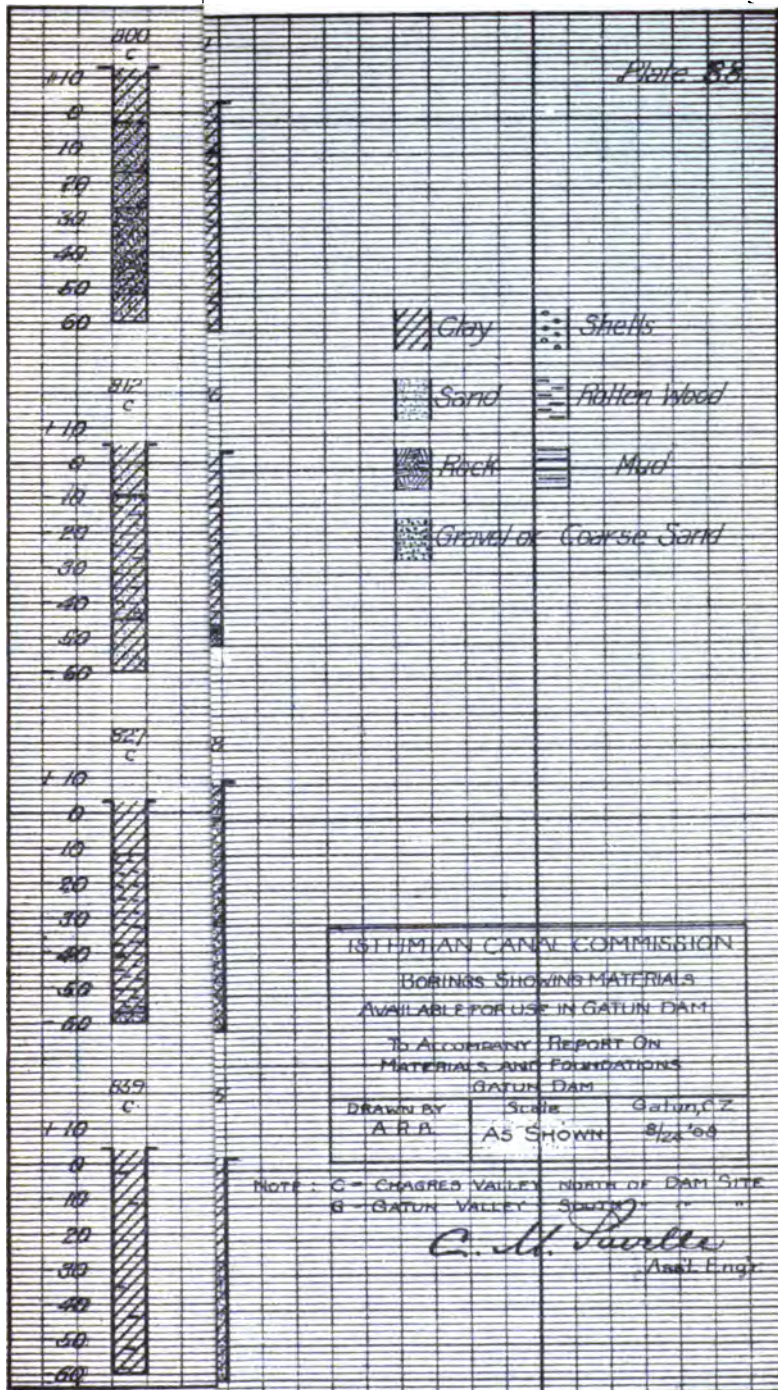 Plate 88
800
C
+10
0
10
20
30
40
50
60
812
C
+10
0
10
20
30
40
50
60
827
C
+10
0
10
20
30
40
50
60
839
C
+10
0
10
20
30
40
50
60
Clay
Shells
Sand
Rotten Wood
Rock
Mud
Gravel or Coarse Sand
ISTHMIAN CANAL COMMISSION
BORINGS SHOWING MATERIALS
AVAILABLE FOR USE IN GATUN DAM
TO ACCOMPANY REPORT ON
MATERIALS AND FOUNDATIONS
GATUN DAM
DRAWN BY
A.R.A.
Scale
AS SHOWN
Gatun, C.Z.
NOTE: C - CHAGRES VALLEY NORTH OF DAM SITE
G - GATUN VALLEY SOUTH " " "
C. M. Saville
Ass't. Eng'r.